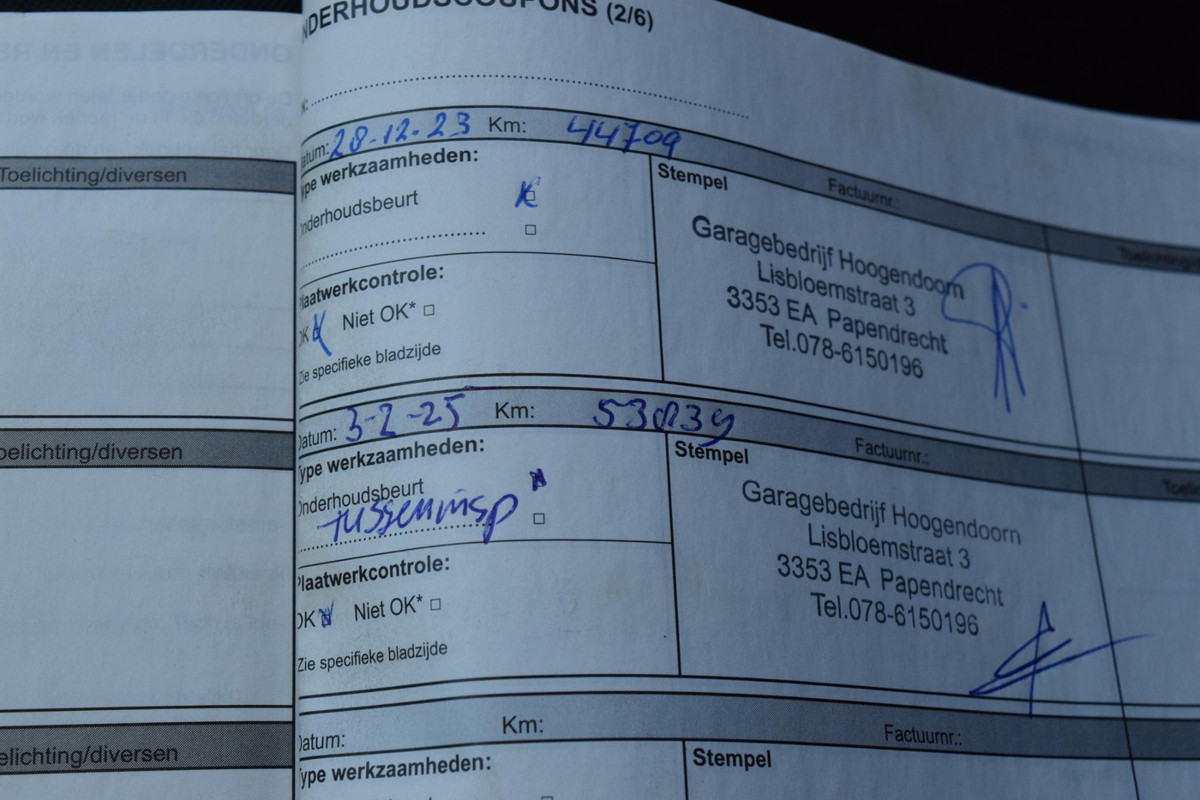 Toelichting/diversen
oelichting/diversen
elichting/diversen
NDERHOUDSCOUPONS (2/6)
atum: 28-12-23 Km: 44709 Factuurnr.:
ype werkzaamheden:
Onderhoudsbeurt
Plaatwerkcontrole:
OK Niet OK*
Zie specifieke bladzijde
Stempel
Garagebedrijf Hoogendoorn
Lisbloemstraat 3
3353 EA Papendrecht
Tel.078-6150196
Datum: 3-2-25 Km: Factuurnr.:
Type werkzaamheden:
Onderhoudsbeurt
tusseninsp
Plaatwerkcontrole:
OK Niet OK*
Zie specifieke bladzijde
Stempel
Garagebedrijf Hoogendoorn
Lisbloemstraat 3
3353 EA Papendrecht
Tel.078-6150196
Datum: Km: Factuurnr.:
Type werkzaamheden:
Stempel